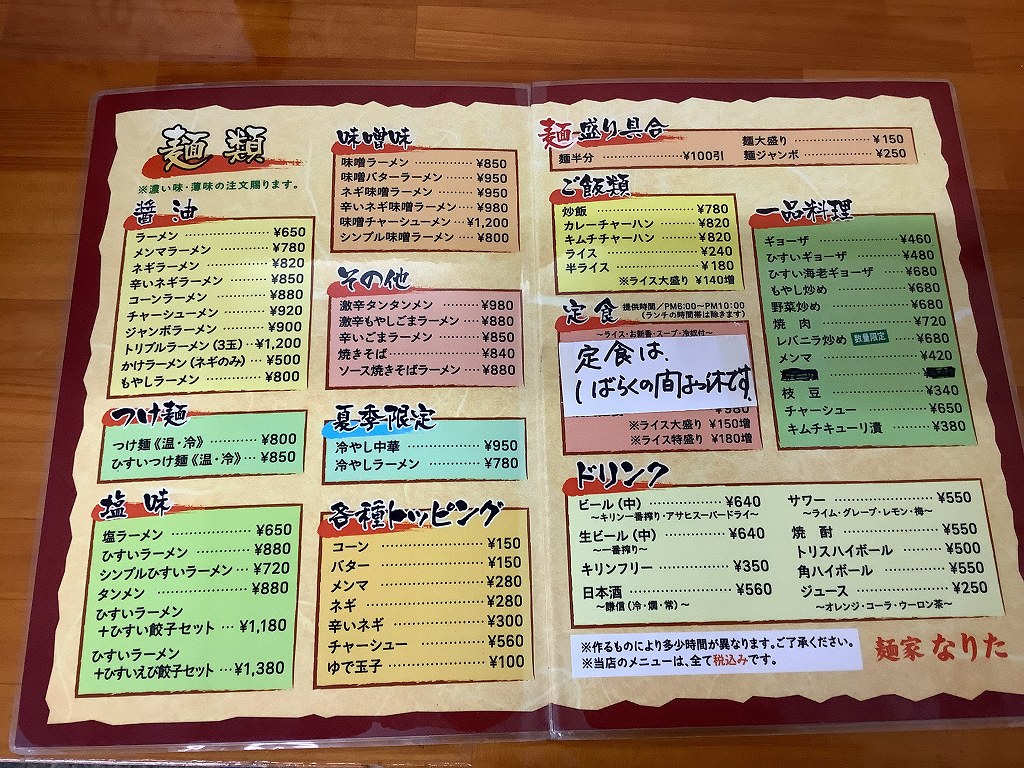 麺類
※濃い味・薄味の注文賜ります。
醤油
ラーメン ¥650
メンマラーメン ¥780
ネギラーメン ¥820
辛いネギラーメン ¥850
コーンラーメン ¥880
チャーシューメン ¥920
ジャンボラーメン ¥900
トリプルラーメン(3玉) ¥1,200
かけラーメン(ネギのみ) ¥500
もやしラーメン ¥800
つけ麺
つけ麺《温・冷》 ¥800
ひすいつけ麺《温・冷》 ¥850
塩味
塩ラーメン ¥650
ひすいラーメン ¥880
シンプルひすいラーメン ¥720
タンメン ¥880
ひすいラーメン
+ひすい餃子セット ¥1,180
ひすいラーメン
+ひすいえび餃子セット ¥1,380
味噌味
味噌ラーメン ¥850
味噌バターラーメン ¥950
ネギ味噌ラーメン ¥950
辛いネギ味噌ラーメン ¥980
味噌チャーシューメン ¥1,200
シンプル味噌ラーメン ¥800
その他
激辛タンタンメン ¥980
激辛もやしごまラーメン ¥880
辛いごまラーメン ¥850
焼きそば ¥840
ソース焼きそばラーメン ¥880
夏季限定
冷やし中華 ¥950
冷やしラーメン ¥780
各種トッピング
コーン ¥150
バター ¥150
メンマ ¥280
ネギ ¥280
辛いネギ ¥300
チャーシュー ¥560
ゆで玉子 ¥100
麺盛り具合
麺半分 ¥100引
麺大盛り ¥150
麺ジャンボ ¥250
ご飯類
炒飯 ¥780
カレーチャーハン ¥820
キムチチャーハン ¥820
ライス ¥240
半ライス ¥180
※ライス大盛り ¥140増
定食 提供時間/PM6:00〜PM10:00
(ランチの時間帯は除きます)
〜ライス・お新香・スープ・冷奴付〜
定食は、
しばらくの間お休です
¥980
※ライス大盛り ¥150増
※ライス特盛り ¥180増
一品料理
ギョーザ ¥460
ひすいギョーザ ¥480
ひすい海老ギョーザ ¥680
もやし炒め ¥680
野菜炒め ¥680
焼肉 ¥720
レバニラ炒め 数量限定 ¥680
メンマ ¥420
枝豆 ¥340
チャーシュー ¥650
キムチキューリ漬 ¥380
ドリンク
ビール(中) ¥640
〜キリン一番搾り・アサヒスーパードライ〜
生ビール(中) ¥640
〜一番搾り〜
キリンフリー ¥350
日本酒 ¥560
〜謙信(冷・燗・常)〜
サワー ¥550
〜ライム・グレープ・レモン・梅〜
焼酎 ¥550
トリスハイボール ¥500
角ハイボール ¥550
ジュース ¥250
〜オレンジ・コーラ・ウーロン茶〜
※作るものにより多少時間が異なります。ご了承ください。
※当店のメニューは、全て税込みです。
麺家なりた